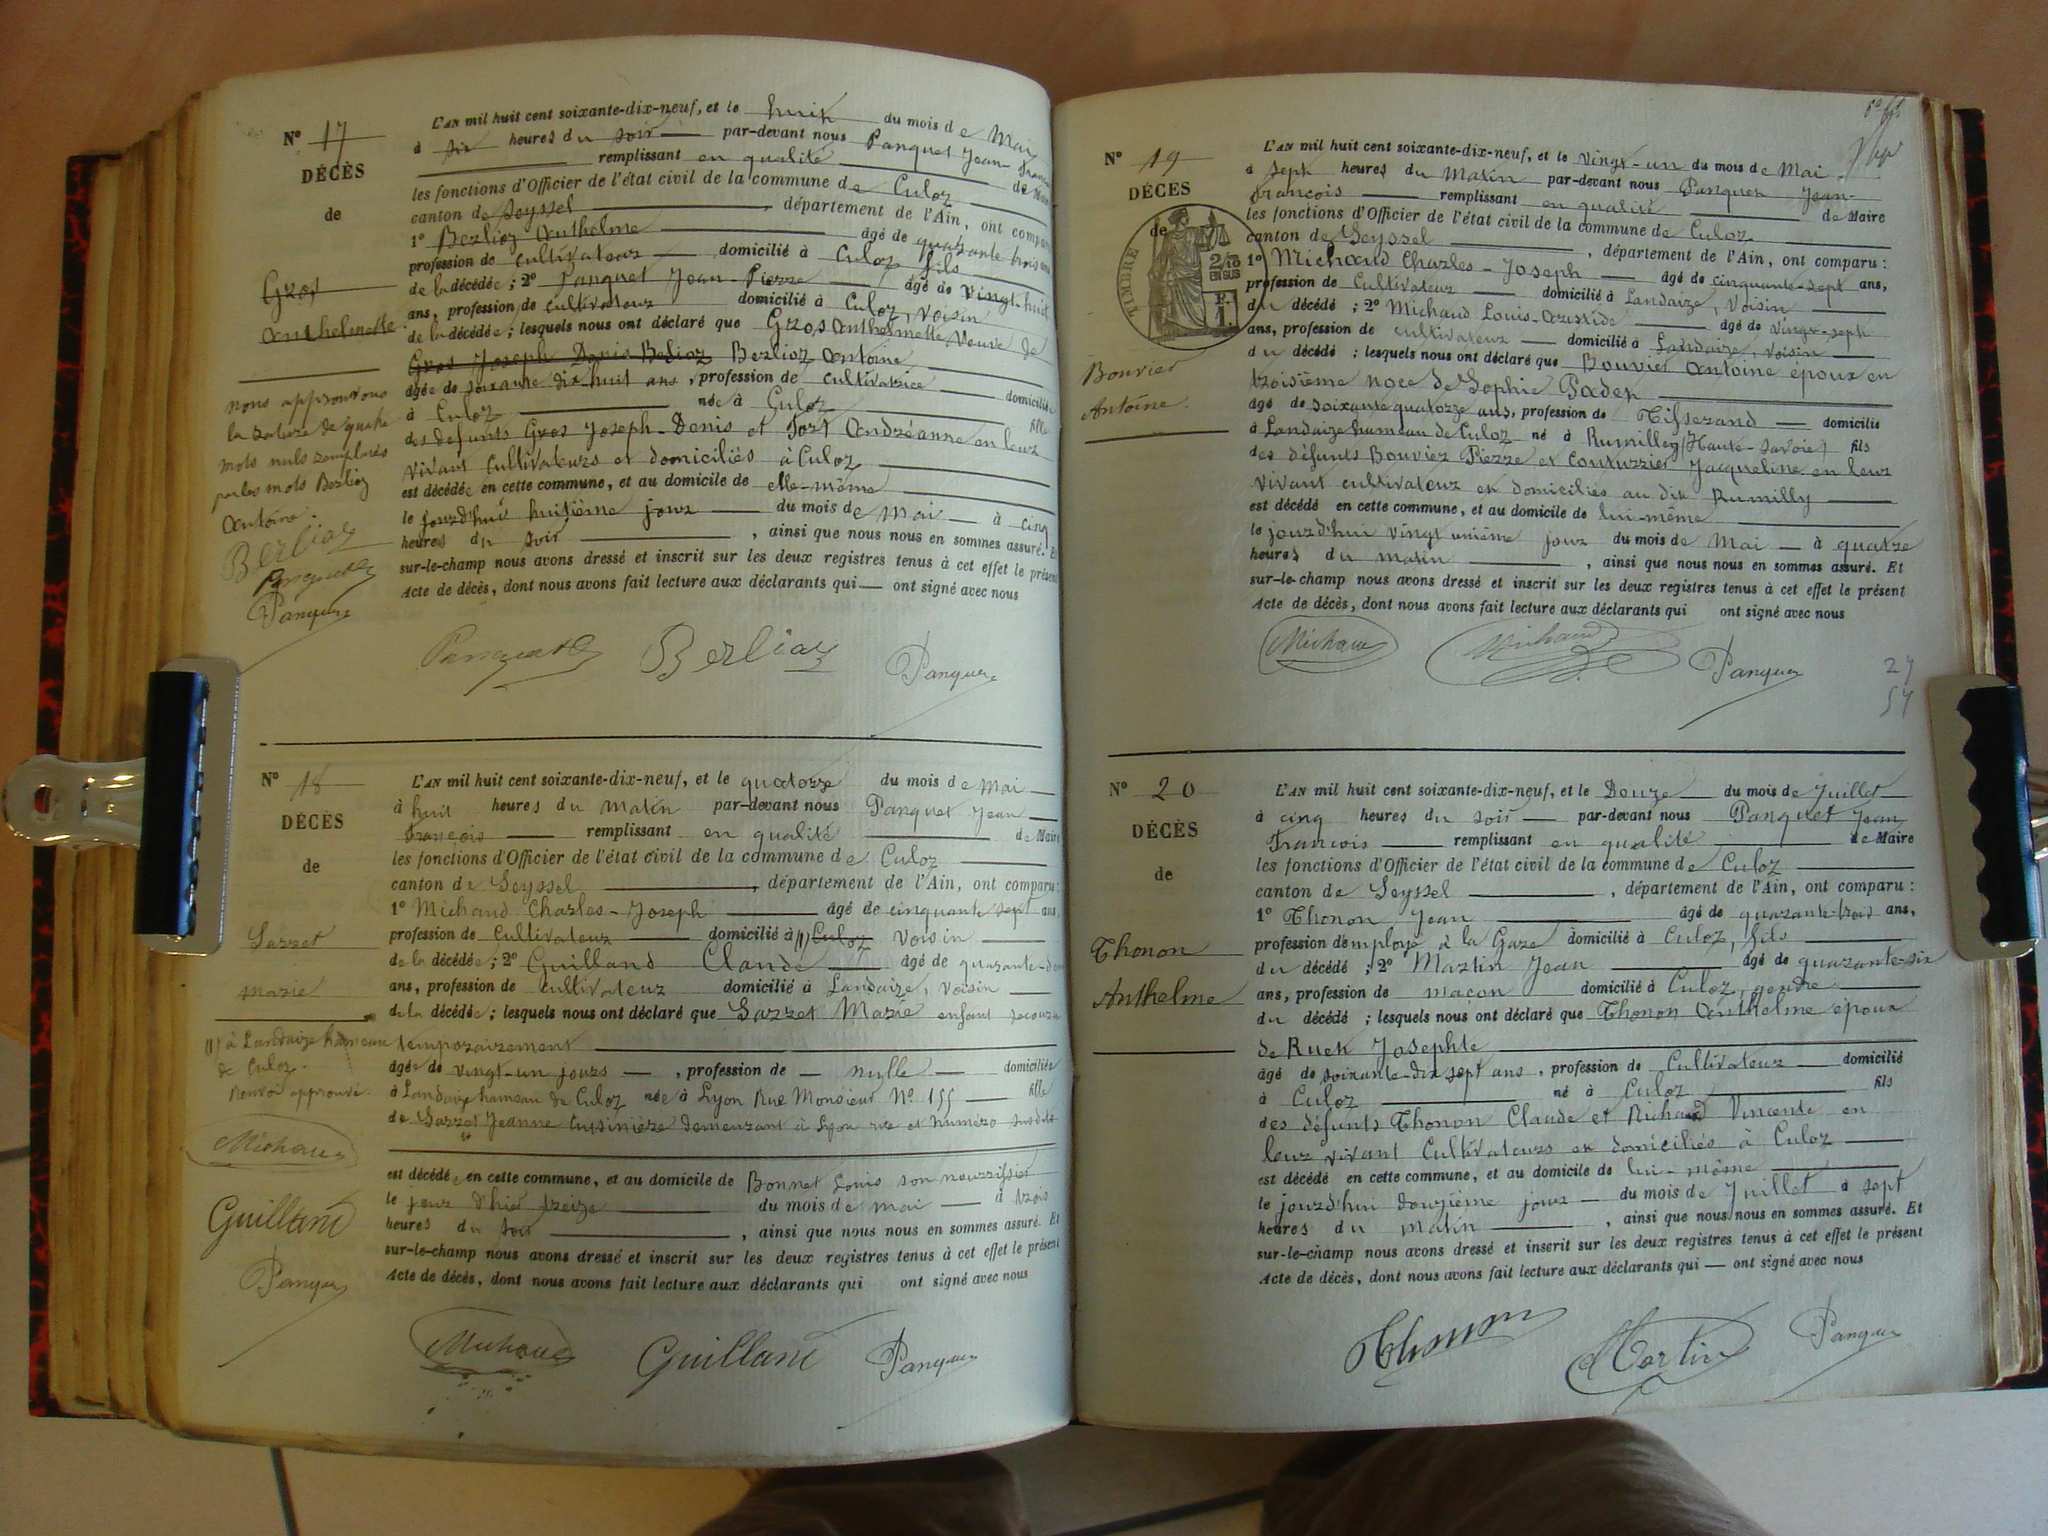 N° 17
DÉCÈS
de
Gros
Anthelmette
nous approuvons
la rature de quatre
mots nuls remplacés
par les mots Berlioz
Antoine.
Berlioz
Panquet
L'AN mil huit cent soixante-dix-neuf, et le huit du mois de Mai
à six heures du soir par-devant nous Panquet Jean-François
remplissant en qualité de Maire
les fonctions d'Officier de l'état civil de la commune de Culoz
canton de Seyssel, département de l'Ain, ont comparu
1° Berlioz Anthelme âgé de quarante-trois ans
profession de cultivateur domicilié à Culoz fils
de la décédée ; 2° Panquet Jean-Pierre âgé de vingt-huit
ans, profession de cultivateur domicilié à Culoz, voisin
de la décédée ; lesquels nous ont déclaré que Gros Anthelmette Veuve de
Gros Joseph Denis Belioz Berlioz Antoine
âgée de soixante dix-huit ans, profession de cultivatrice domiciliée
à Culoz née à Culoz fille
des défunts Gros Joseph-Denis et Fort Andréanne en leur
vivant cultivateurs et domiciliés à Culoz
est décédée en cette commune, et au domicile de elle-même
le jourd'hui huitième jour du mois de Mai à cinq
heures du soir, ainsi que nous nous en sommes assuré. Et
sur-le-champ nous avons dressé et inscrit sur les deux registres tenus à cet effet le présent
Acte de décès, dont nous avons fait lecture aux déclarants qui — ont signé avec nous
Berlioz Panquet
N° 18
DÉCÈS
de
Sarret
Marie
(1) à Landaize hameau
de Culoz.
Renvoi approuvé.
Michaud
Guilland
Panquet
L'AN mil huit cent soixante-dix-neuf, et le quatorze du mois de Mai
à huit heures du matin par-devant nous Panquet Jean
François remplissant en qualité de Maire
les fonctions d'Officier de l'état civil de la commune de Culoz
canton de Seyssel, département de l'Ain, ont comparu :
1° Michaud Charles-Joseph âgé de cinquante sept ans,
profession de cultivateur domicilié à (1) Culoz voisin
de la décédée ; 2° Guilland Claude âgé de quarante-
ans, profession de cultivateur domicilié à Landaize, voisin
de la décédée ; lesquels nous ont déclaré que Sarret Marie enfant secouru
temporairement
âgée de vingt-un jours, profession de — nulle — domiciliée
à Landaize hameau de Culoz née à Lyon Rue Monsieur N° 155 fille
de Sarret Jeanne Cuisinière demeurant à Lyon rue et numéro susdits
est décédée en cette commune, et au domicile de Bonnet Louis son nourrissier
le jour d'hier treize du mois de mai à trois
heures du soir, ainsi que nous nous en sommes assuré. Et
sur-le-champ nous avons dressé et inscrit sur les deux registres tenus à cet effet le présent
Acte de décès, dont nous avons fait lecture aux déclarants qui ont signé avec nous
Michaud Guilland Panquet
N° 19
DÉCÈS
de
TIMBRE
2/10
EN SUS
Bouvier
Antoine.
L'AN mil huit cent soixante-dix-neuf, et le vingt-un du mois de Mai
à sept heures du matin par-devant nous Panquet Jean-
François remplissant en qualité de Maire
les fonctions d'Officier de l'état civil de la commune de Culoz
canton de Seyssel, département de l'Ain, ont comparu :
1° Michaud Charles-Joseph âgé de cinquante-sept ans,
profession de Cultivateur domicilié à Landaize, voisin
du décédé ; 2° Michaud Louis-Aristide âgé de vingt-sept
ans, profession de cultivateur domicilié à Landaize, voisin
du décédé ; lesquels nous ont déclaré que Bouvier Antoine époux en
troisième noce de Sophie
âgé de soixante quatorze ans, profession de Tisserand domicilié
à Landaize hameau de Culoz né à Rumilly (Haute-Savoie) fils
des défunts Bouvier Pierre et Couturrier Jacqueline en leur
vivant cultivateur et domiciliés au dit Rumilly
est décédé en cette commune, et au domicile de lui-même
le jourd'hui vingt unième jour du mois de Mai — à quatre
heures du matin, ainsi que nous nous en sommes assuré. Et
sur-le-champ nous avons dressé et inscrit sur les deux registres tenus à cet effet le présent
Acte de décès, dont nous avons fait lecture aux déclarants qui ont signé avec nous
Michaud Michaud Panquet
27
57
N° 20
DÉCÈS
de
Thonon
Anthelme
L'AN mil huit cent soixante-dix-neuf, et le Douze du mois de Juillet
à cinq heures du soir par-devant nous Panquet Jean
François remplissant en qualité de Maire
les fonctions d'Officier de l'état civil de la commune de Culoz
canton de Seyssel, département de l'Ain, ont comparu :
1° Thonon Jean âgé de quarante-trois ans,
profession d'employé à la Gare domicilié à Culoz, fils
du décédé ; 2° Martin Jean âgé de quarante-six
ans, profession de maçon domicilié à Culoz, gendre
du décédé ; lesquels nous ont déclaré que Thonon Anthelme époux
de Ruet Josephte
âgé de soixante-dix sept ans, profession de Cultivateur domicilié
à Culoz né à Culoz fils
des défunts Thonon Claude et Richard Vincente en
leur vivant Cultivateurs et domiciliés à Culoz
est décédé en cette commune, et au domicile de lui-même
le jourd'hui douzième jour du mois de Juillet à sept
heures du matin, ainsi que nous nous en sommes assuré. Et
sur-le-champ nous avons dressé et inscrit sur les deux registres tenus à cet effet le présent
Acte de décès, dont nous avons fait lecture aux déclarants qui — ont signé avec nous
Thonon Martin Panquet